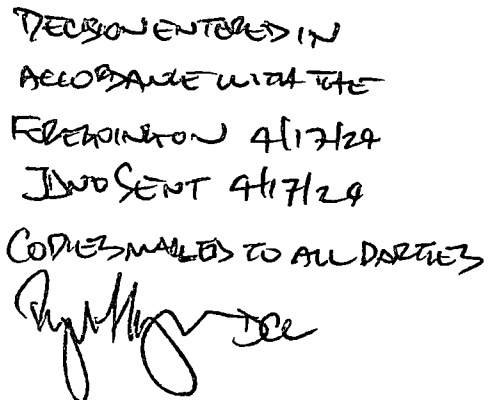 DECISION ENTERED IN
ACCORDANCE WITH THE
FOREGOING ON 4/17/24
JDNO SENT 4/17/24
COPIES MAILED TO ALL PARTIES
DCC